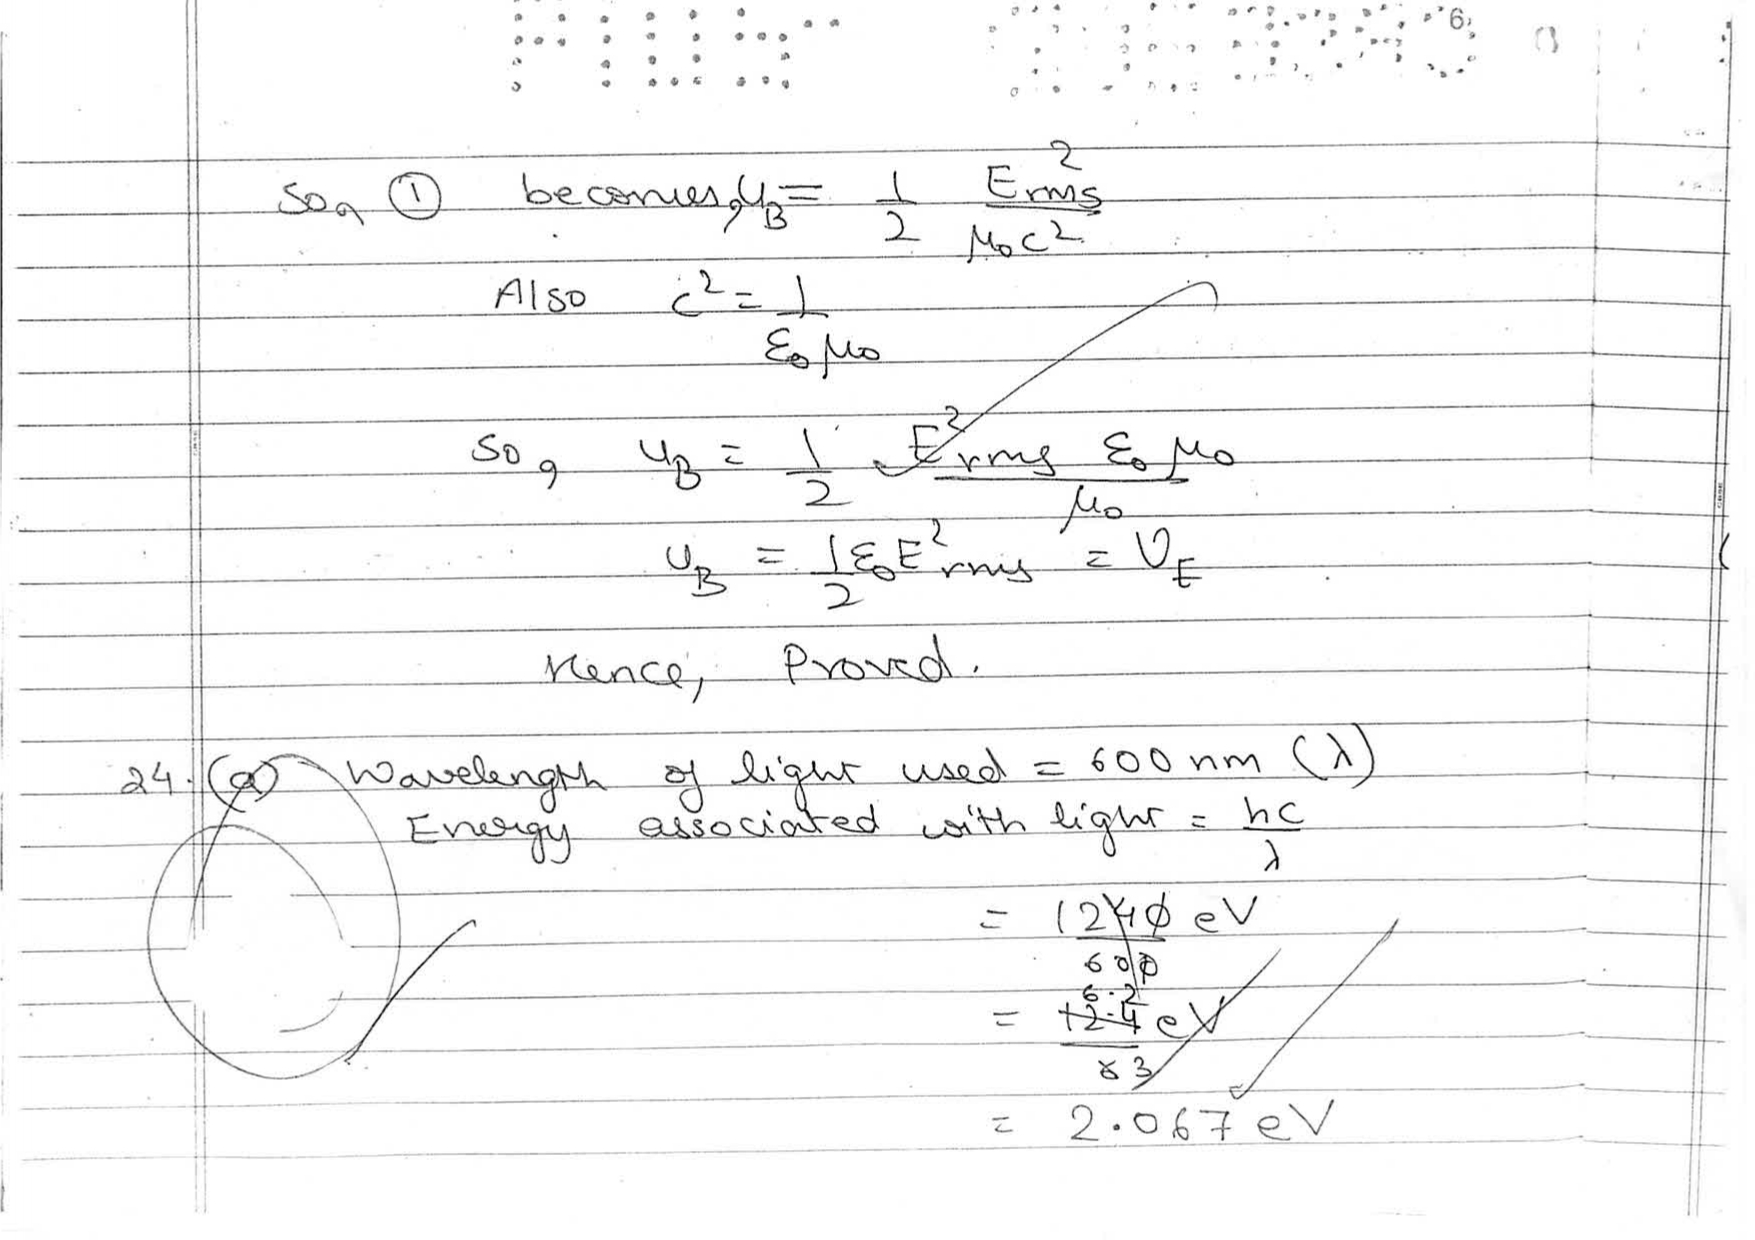 6
So, ① becomes, u_B = 1/2 E²rms/μ₀c²
Also c² = 1/ε₀μ₀
So, u_B = 1/2 E²rms ε₀ μ₀/μ₀
u_B = 1/2 ε₀E²rms = U_E
Hence, Proved.
24. (a) Wavelength of light used = 600 nm (λ)
Energy associated with light = hc/λ
= 1240/600 eV
6.2
= 12.4/6 3 eV
= 2.067 eV